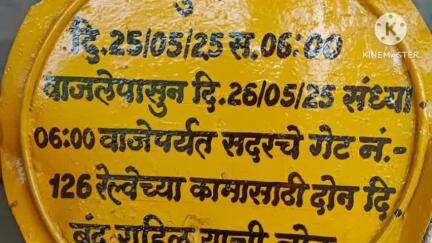 दि.25/05/25 स.06:00
KINEMASTER
वाजलेपासुन दि.26/05/25 संध्या
06:00 वाजेपर्यंत सदरचे गेट नं.-
126 रेल्वेच्या कामासाठी दोन दि.
बंद राहिल याची नोंद